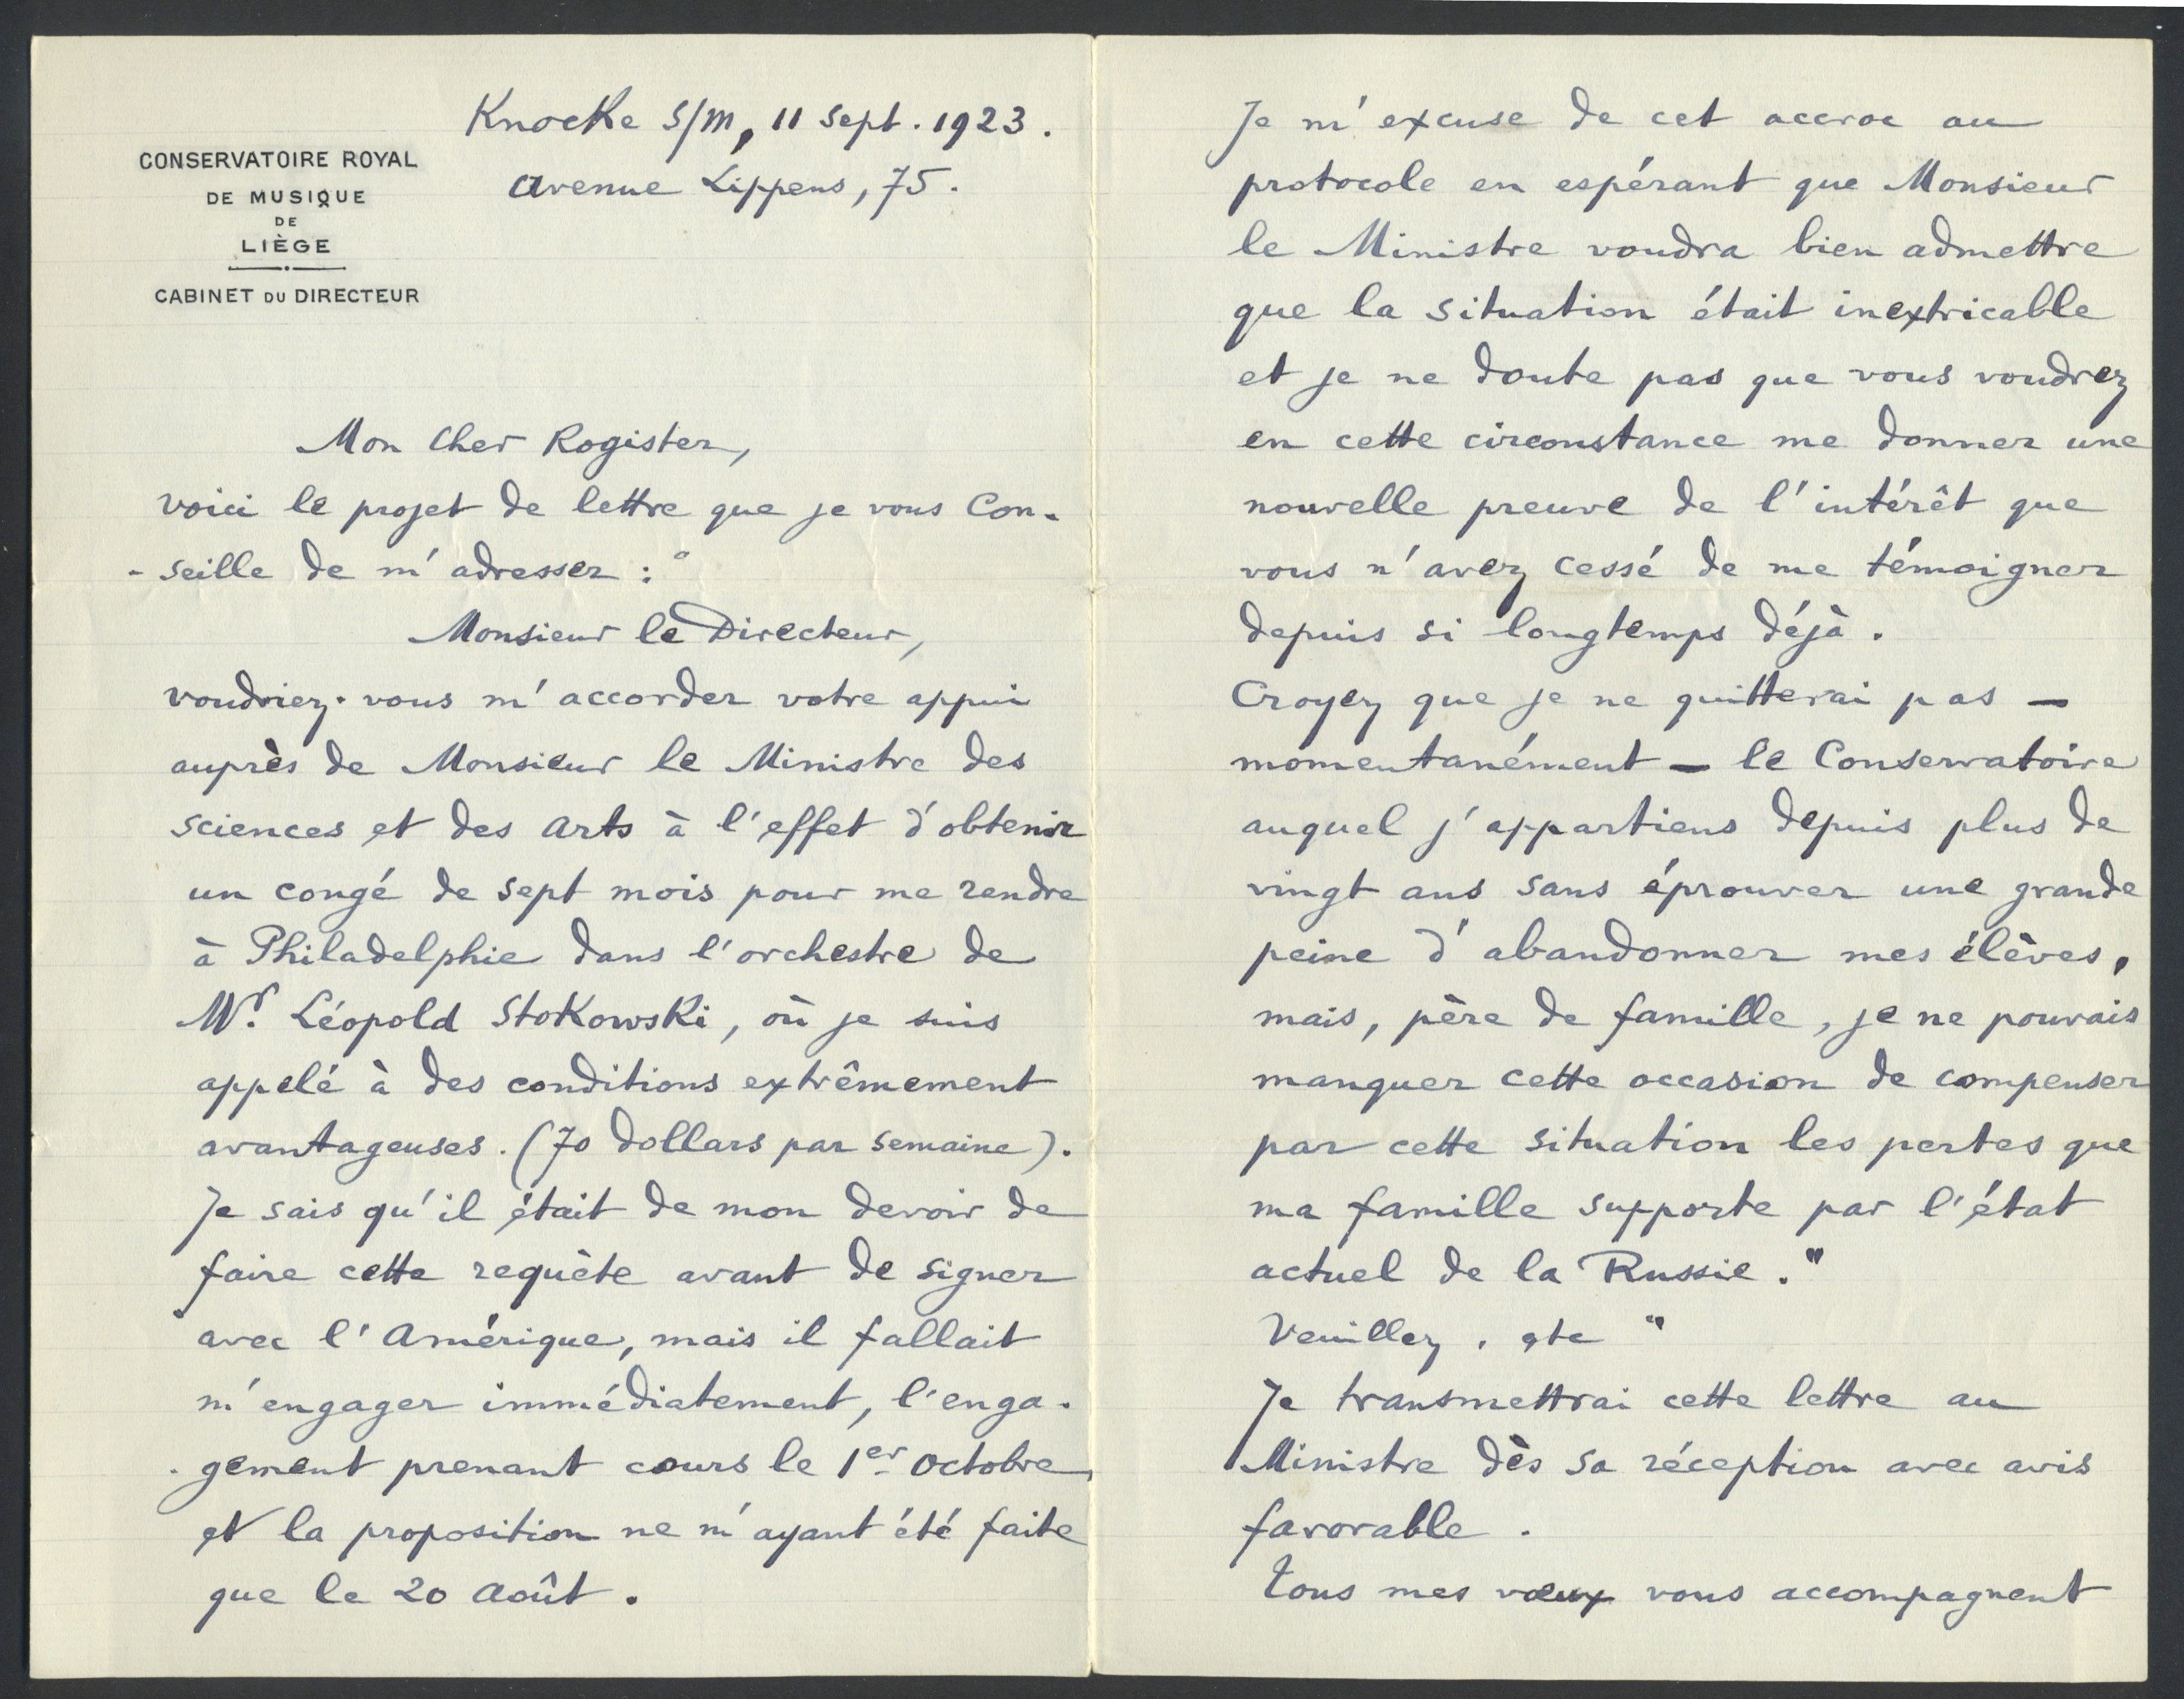 CONSERVATOIRE ROYAL
DE MUSIQUE
DE
LIÈGE
CABINET DU DIRECTEUR
Knocke s/m, 11 sept. 1923.
Avenue Lippens, 75.
Mon cher Rogister,
voici le projet de lettre que je vous con-
-seille de m'adresser : "
Monsieur le Directeur,
voudriez-vous m'accorder votre appui
auprès de Monsieur le Ministre des
Sciences et des Arts à l'effet d'obtenir
un congé de sept mois pour me rendre
à Philadelphie dans l'orchestre de
Mr. Léopold Stokowski, où je suis
appelé à des conditions extrêmement
avantageuses. (70 dollars par semaine).
Je sais qu'il était de mon devoir de
faire cette requète avant de signer
avec l'Amérique, mais il fallait
m'engager immédiatement, l'enga-
-gement prenant cours le 1er octobre,
et la proposition ne m'ayant été faite
que le 20 Août.
Je m'excuse de cet accroc au
protocole en espérant que Monsieur
le Ministre voudra bien admettre
que la situation était inextricable
et je ne doute pas que vous voudrez
en cette circonstance me donner une
nouvelle preuve de l'intérêt que
vous n'avez cessé de me témoigner
depuis si longtemps déjà.
Croyez que je ne quitterai pas –
momentanément – le Conservatoire
auquel j'appartiens depuis plus de
vingt ans sans éprouver une grande
peine d'abandonner mes élèves,
mais, père de famille, je ne pouvais
manquer cette occasion de compenser
par cette situation les pertes que
ma famille supporte par l'état
actuel de la Russie."
Veuillez, etc "
Je transmettrai cette lettre au
Ministre dès sa réception avec avis
favorable.
Tous mes vœux vous accompagnent